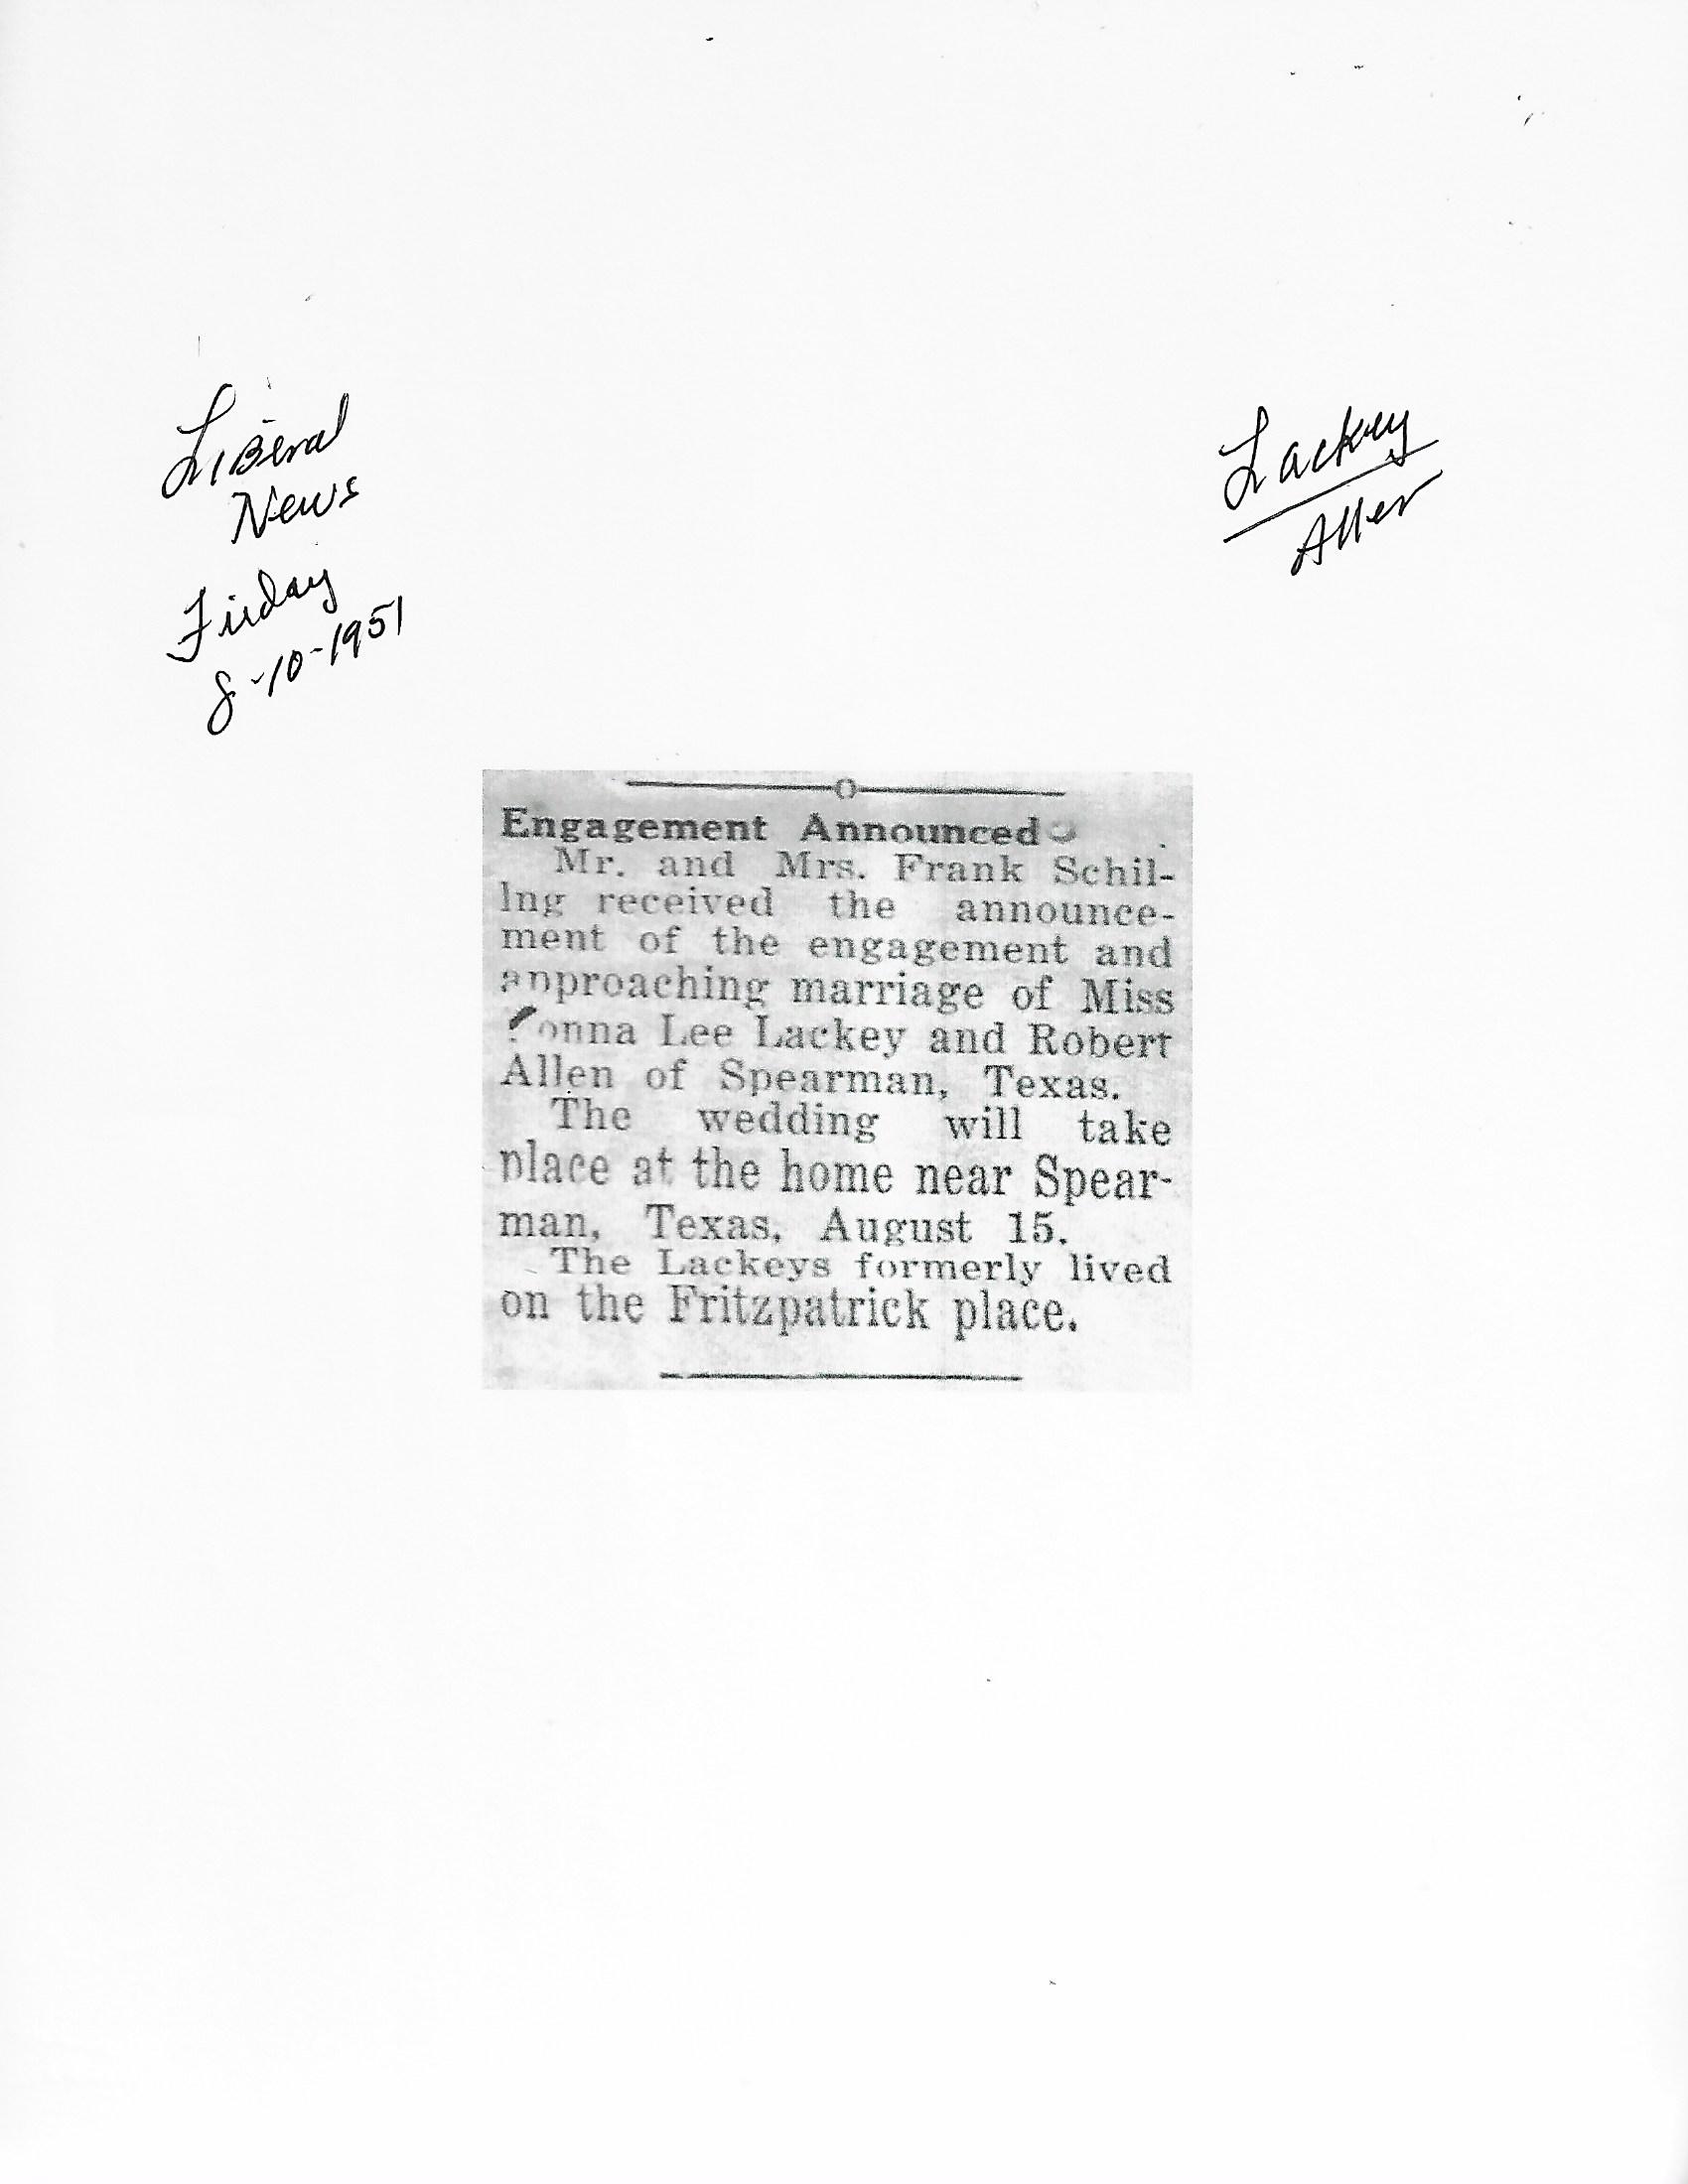 Liberal
News
Firday
8-10-1951
Lackey
Allen
Engagement Announced
Mr. and Mrs. Frank Schil-
ing received the announce-
ment of the engagement and
approaching marriage of Miss
onna Lee Lackey and Robert
Allen of Spearman, Texas.
The wedding will take
place at the home near Spear-
man, Texas, August 15.
The Lackeys formerly lived
on the Fritzpatrick place.